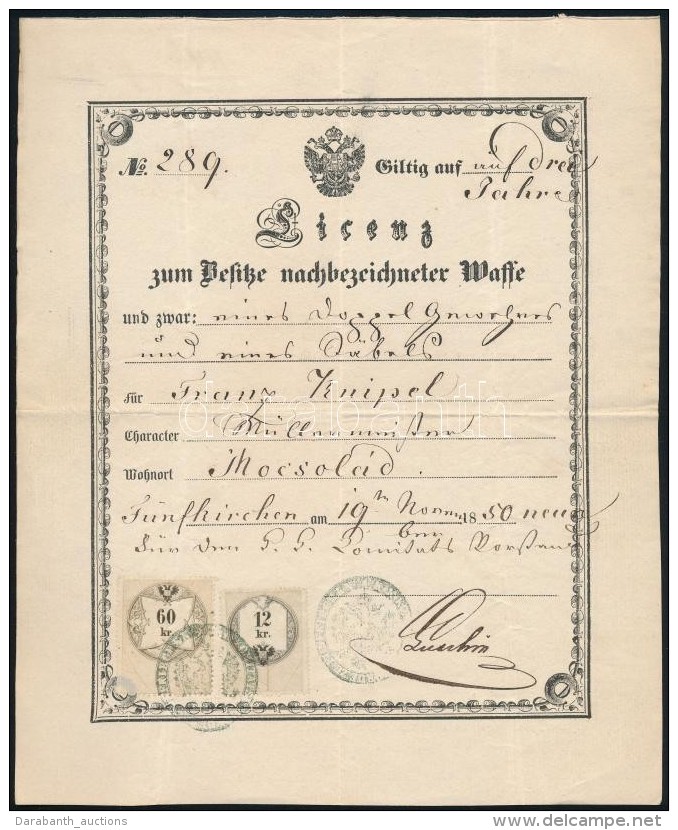 No. 289. Giltig auf auf drei
Jahre
Licenz
zum Besitze nachbezeichneter Waffe
und zwar: eines Doppel Gewehres
und eines Säbels
für Franz Knipel
Character Müllermeister
Wohnort Mocsolád.
Fünfkirchen am 19ten Novem 1850 neun
ber
Für den K. K. Comitats Vorstand
60
kr.
12
kr.
darabanth
Darabanth_auctions
http://www.delcampe.net